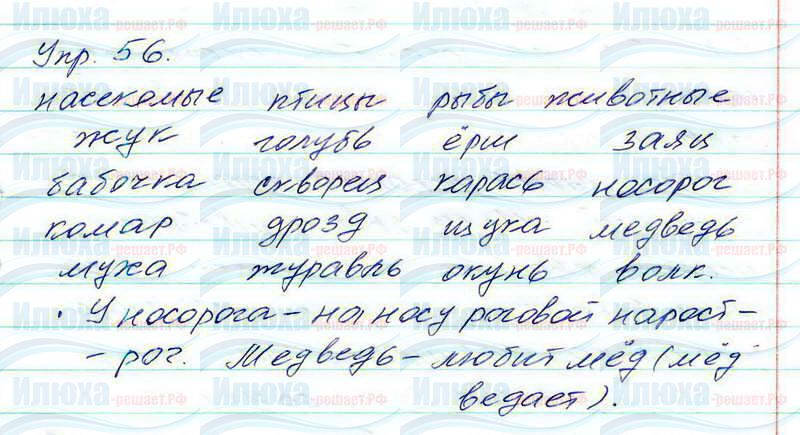 Упр. 56.
насекомые птицы рыбы животные
жук голубь ёрш заяц
бабочка скворец карась носорог
комар дрозд щука медведь
муха журавль окунь волк.
· У носорога – на носу роговой нарост –
– рог. Медведь – любит мёд (мёд
ведает).